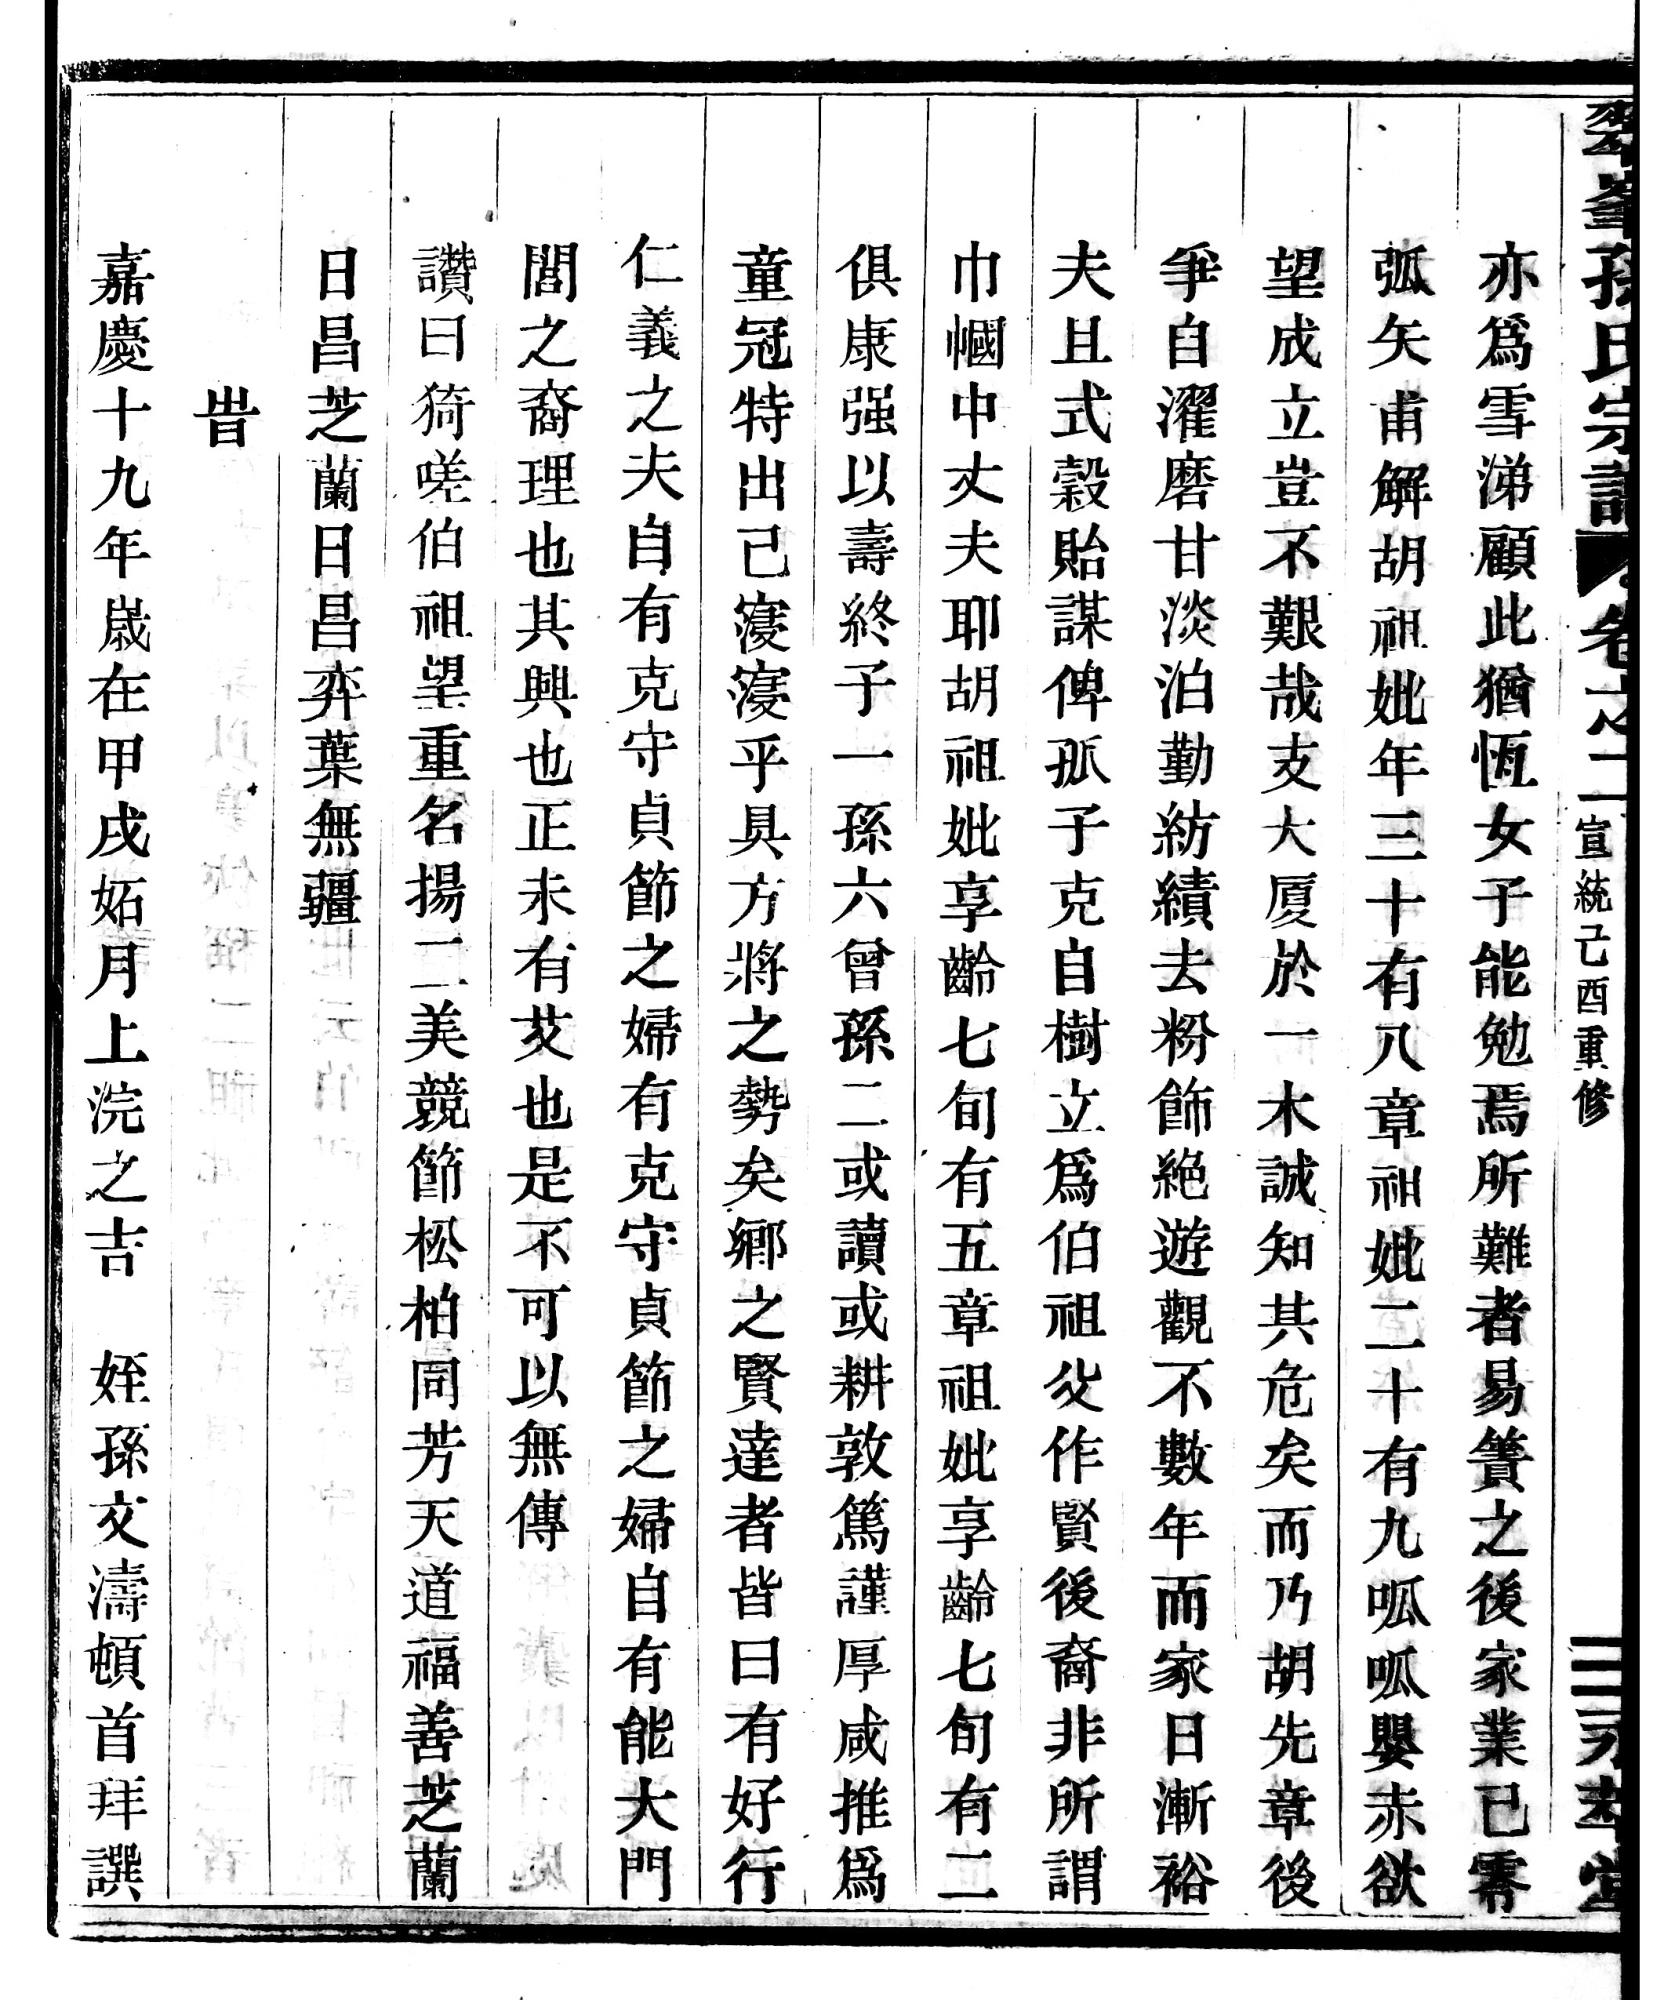 孫氏宗譜 卷之二 宣統己酉重修 二 永萃堂
亦爲雪涕顧此猶恆女子能勉焉所難者易簀之後家業已零
弧矢甫解胡祖妣年三十有八章祖妣二十有九呱呱嬰赤欲
望成立豈不艱哉支大厦於一木誠知其危矣而乃胡先章後
爭自濯磨甘淡泊勤紡績去粉飾絶遊觀不數年而家日漸裕
夫且式穀貽謀俾孤子克自樹立爲伯祖父作賢後裔非所謂
巾幗中丈夫耶胡祖妣享齡七旬有五章祖妣享齡七旬有二
俱康强以壽終子一孫六曾孫二或讀或耕敦篤謹厚咸推爲
童冠特出己寖寖乎具方將之勢矣鄉之賢達者皆曰有好行
仁義之夫自有克守貞節之婦有克守貞節之婦自有能大門
閭之裔理也其興也正未有艾也是不可以無傳
讚曰猗嗟伯祖望重名揚二美競節松柏同芳天道福善芝蘭
日昌芝蘭日昌弈葉無疆
旹
嘉慶十九年歲在甲戌姤月上浣之吉 姪孫文濤頓首拜譔